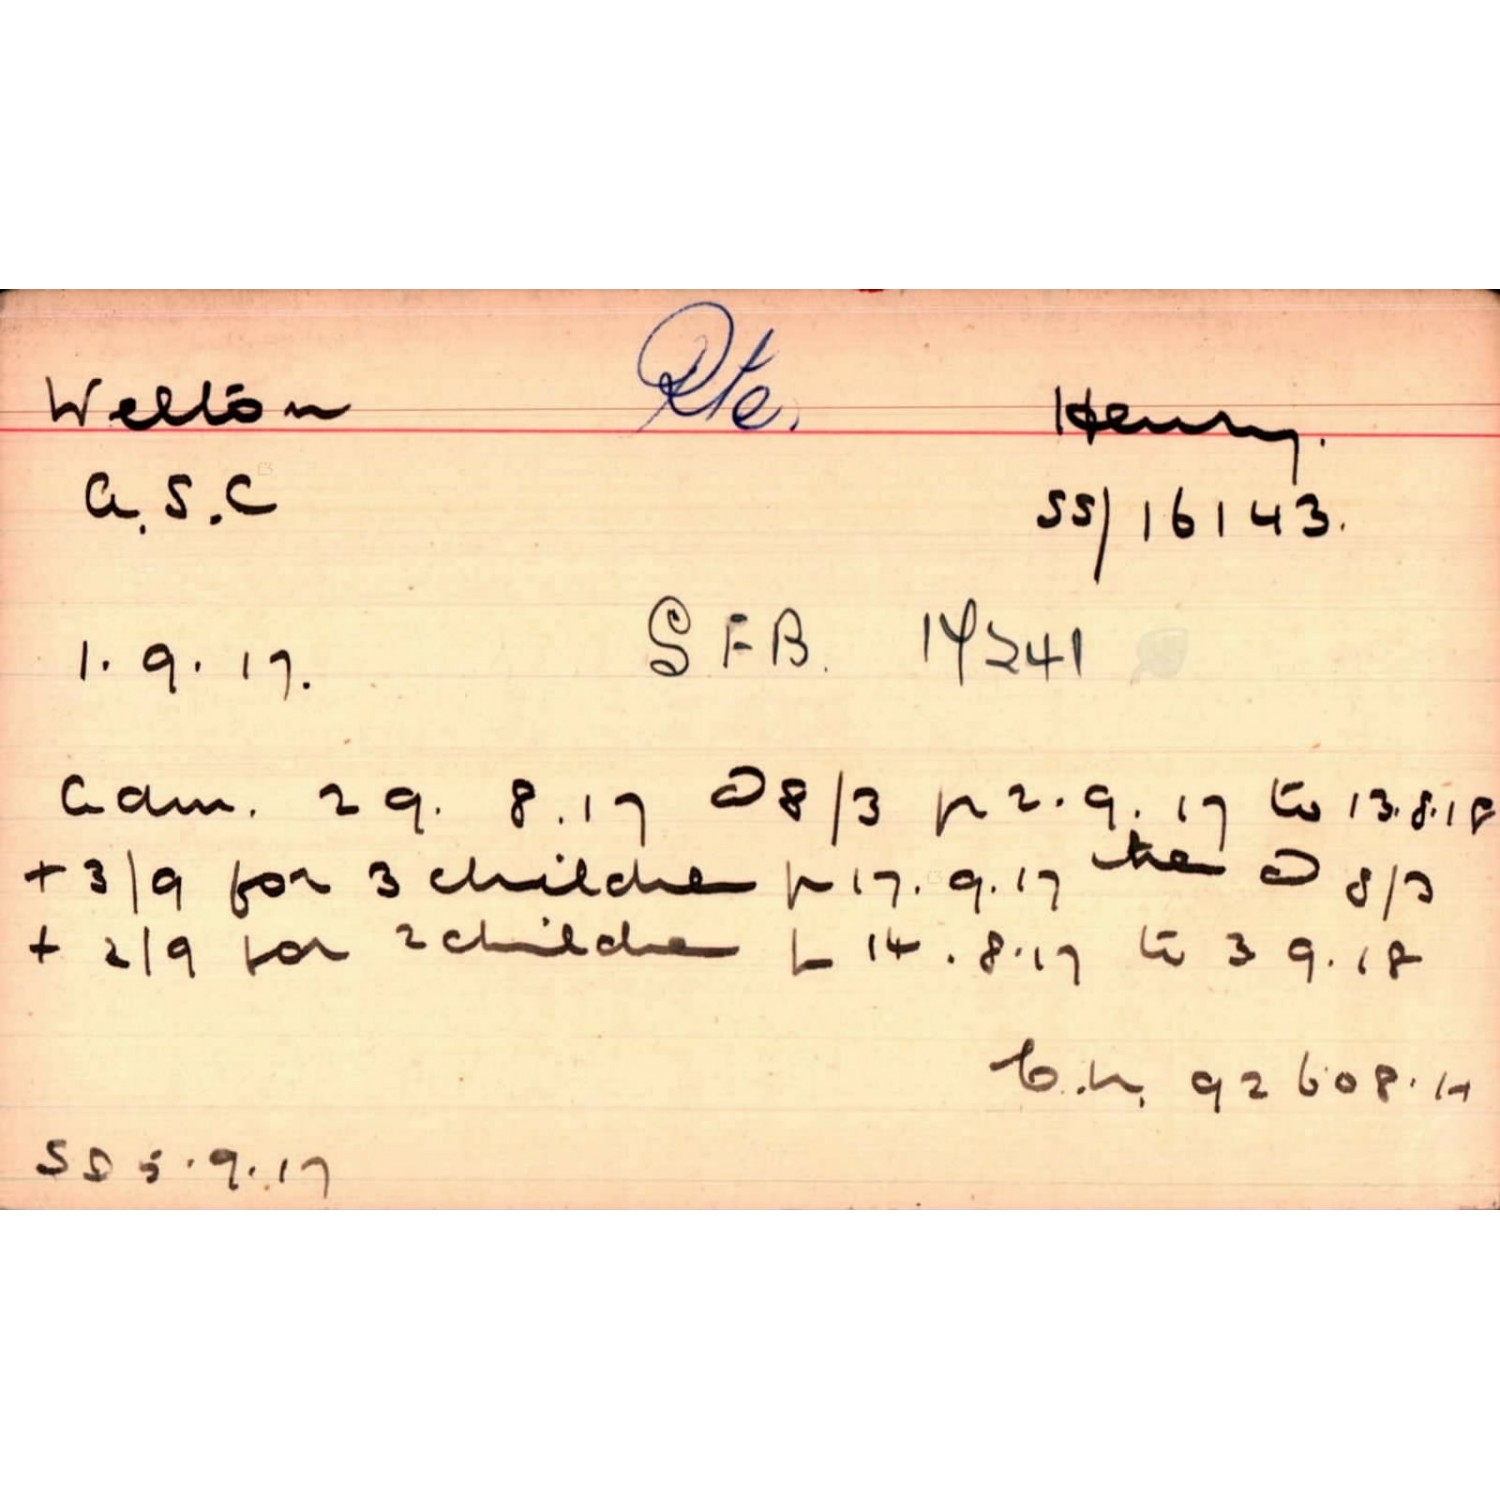 Welton Pte. Henry.
A.S.C SS/16143.
1.9.17. SFB. 14241
Adm. 29.8.17 @ 8/3 fr 2.9.17 to 13.8.18
+ 3/9 for 3 children fr 17.9.17 then @ 8/3
+ 2/9 for 2 children fr 14.8.17 to 3 9.18
92608.H
SD 5.9.17